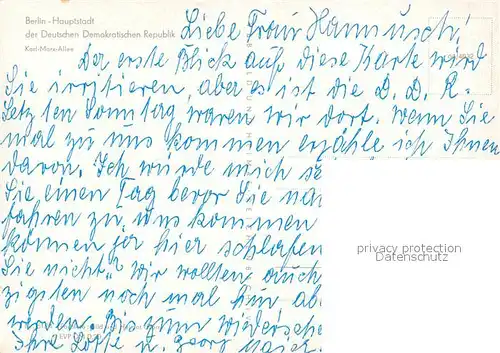 Berlin - Hauptstadt
der Deutschen Demokratischen Republik
Karl-Marx-Allee
Liebe Frau Hannusch,
Der erste Blick auf diese Karte wird
Sie irritieren, aber es ist die D. D. R-
Letzten Sonntag waren wir dort. Wenn Sie
mal zu uns kommen erzähle ich Ihnen
davon. Ich würde mich s
Sie einen Tag bevor Sie na
fahren zu uns kommen
können ja hier schlafen
Sie nicht? Wir wollten auch
zigsten noch mal hin ab
werden. Bis zum Wiederse
Ihre Lotte u. Georg Maier
EVP
privacy protection
Datenschutz